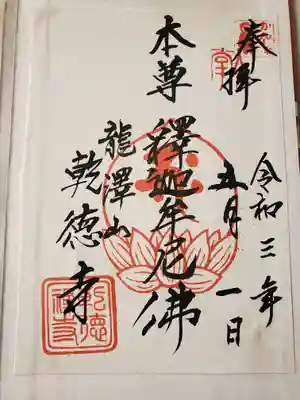 奉拝
令和三年
五月一日
本尊 釋迦牟尼佛
龍澤山
乾徳寺
乾徳禅寺